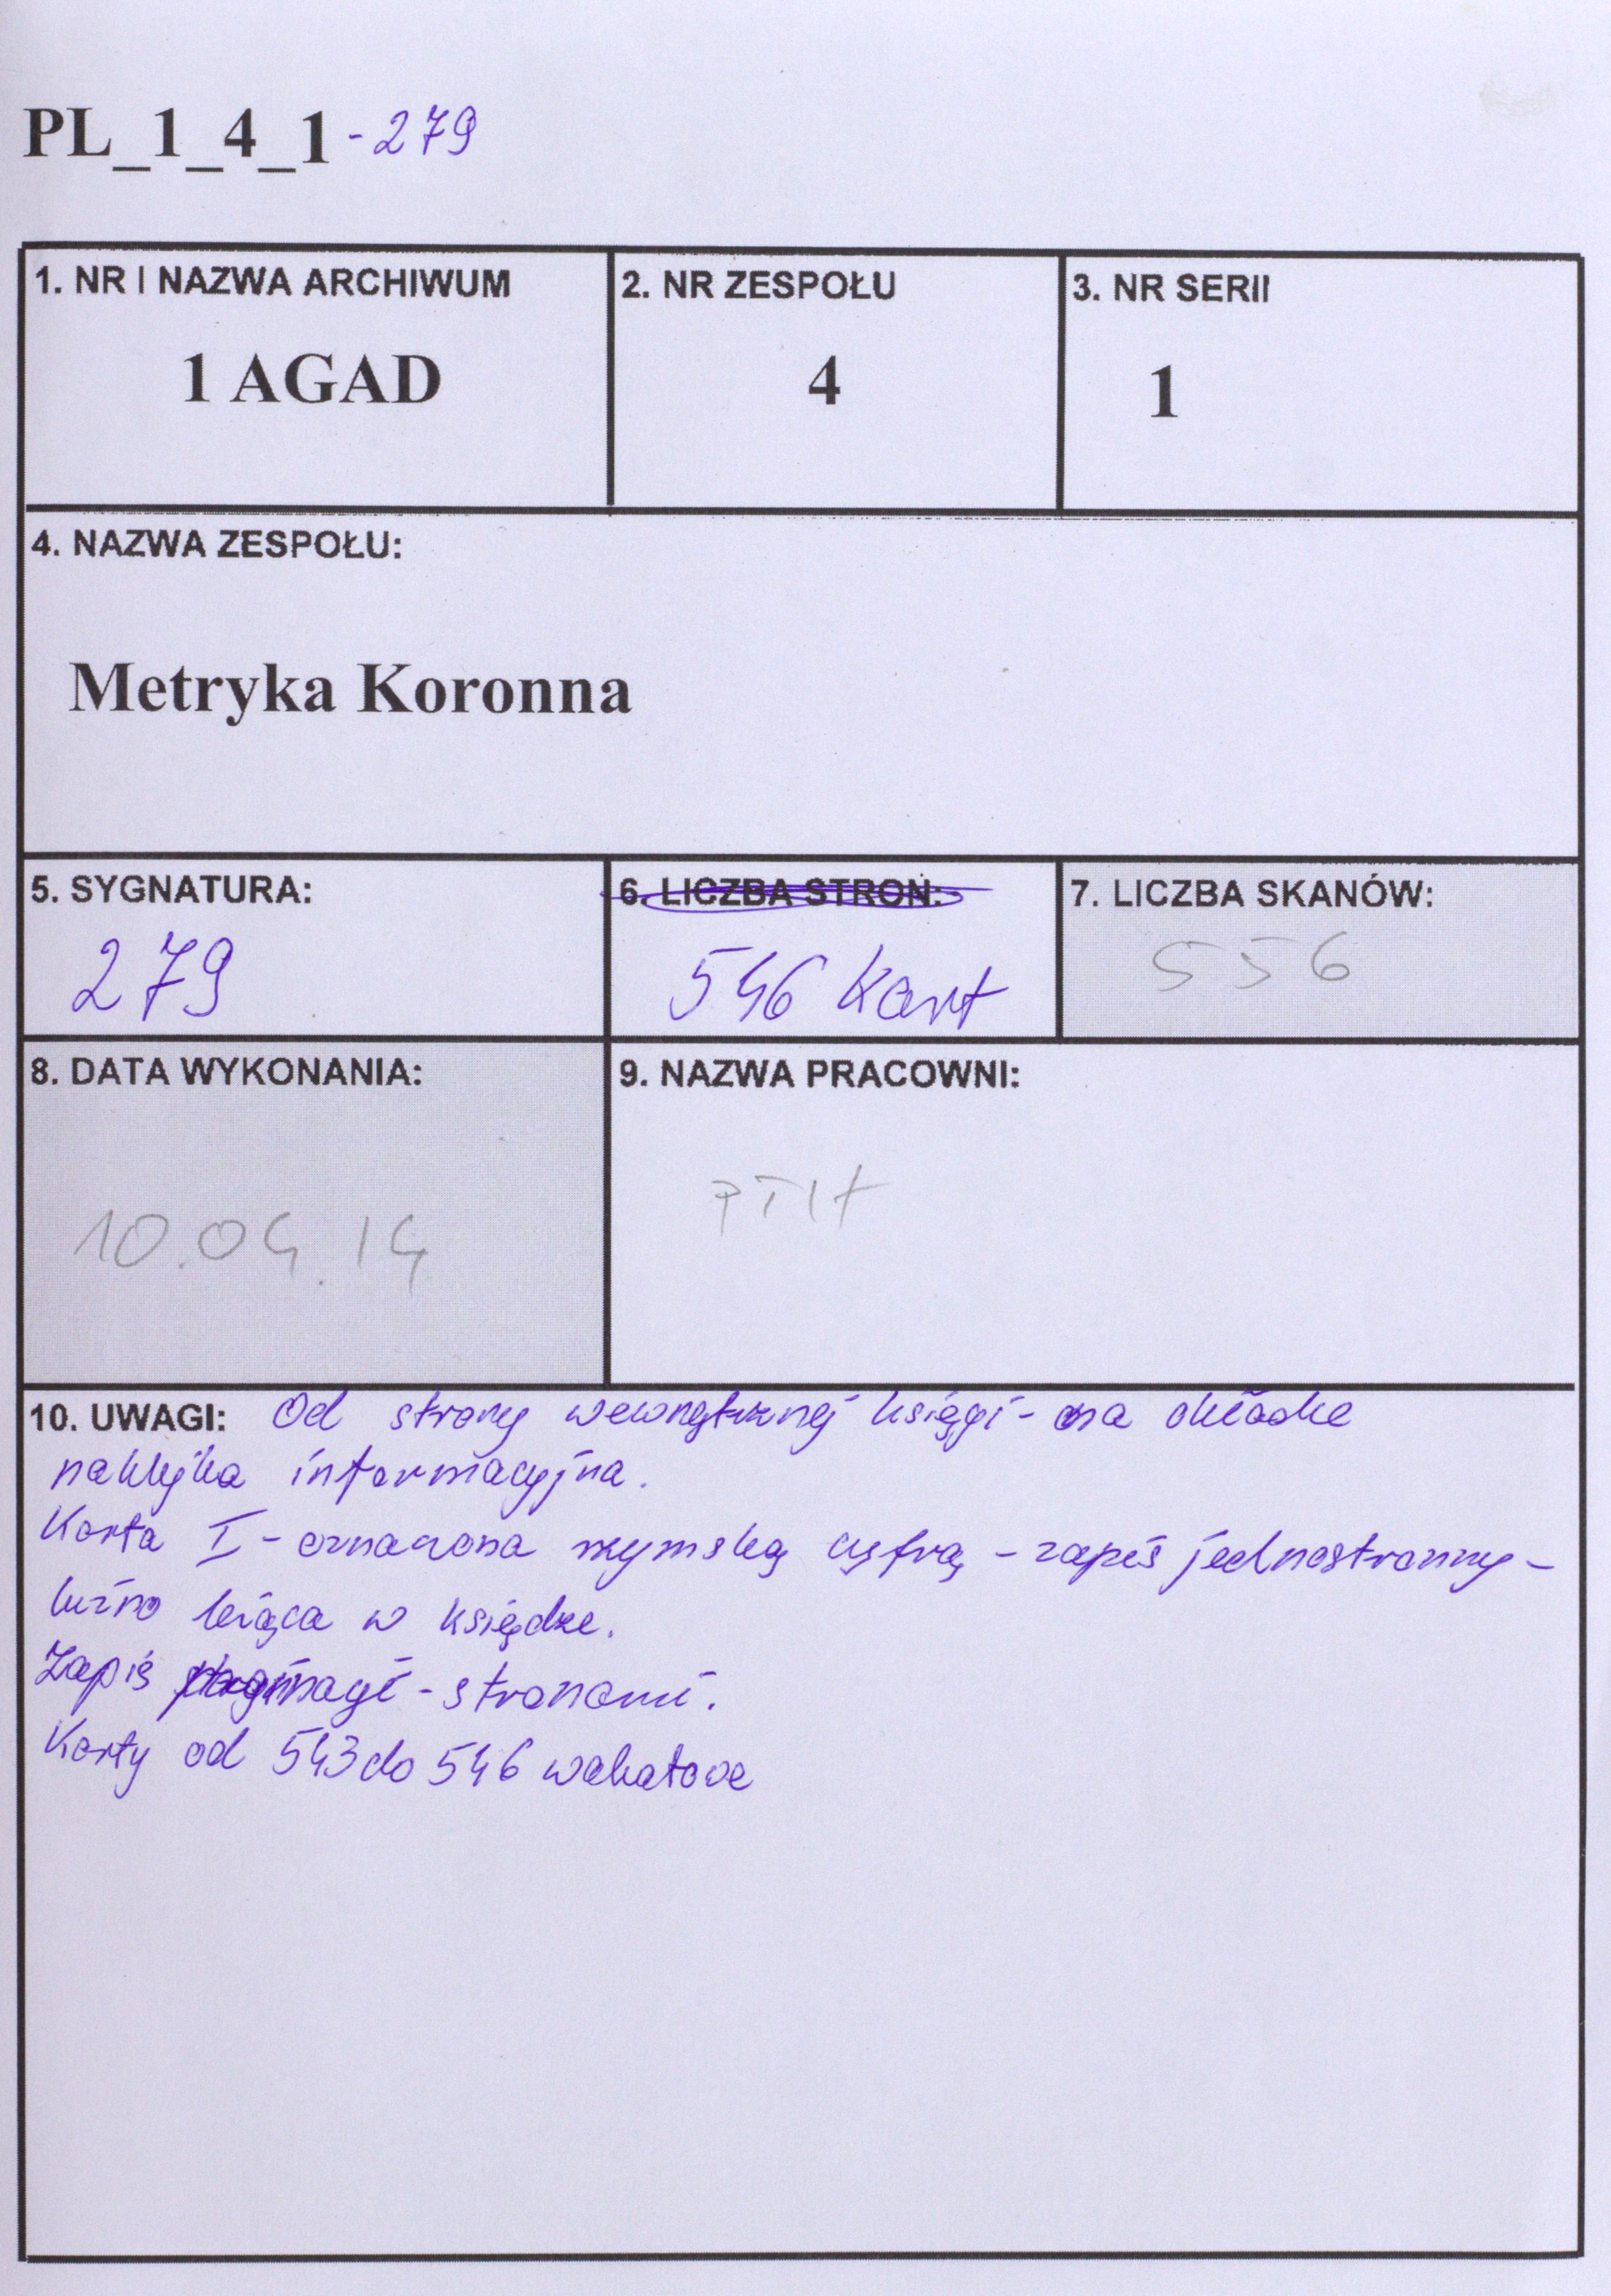 PL_1_4_1 - 279
1. NR I NAZWA ARCHIWUM
1 AGAD
2. NR ZESPOŁU
4
3. NR SERII
1
4. NAZWA ZESPOŁU:
Metryka Koronna
5. SYGNATURA:
279
6. LICZBA STRON:
546 kart
7. LICZBA SKANÓW:
556
8. DATA WYKONANIA:
10.04.14
9. NAZWA PRACOWNI:
10. UWAGI: Od strony wewnętrznej księgi - na okładce
naklejka informacyjna.
Karta I - oznaczona rzymską cyfrą - zapis jednostronny -
luźno leżąca w księdze.
Zapis - stronami.
Karty od 543 do 546 wakatowe